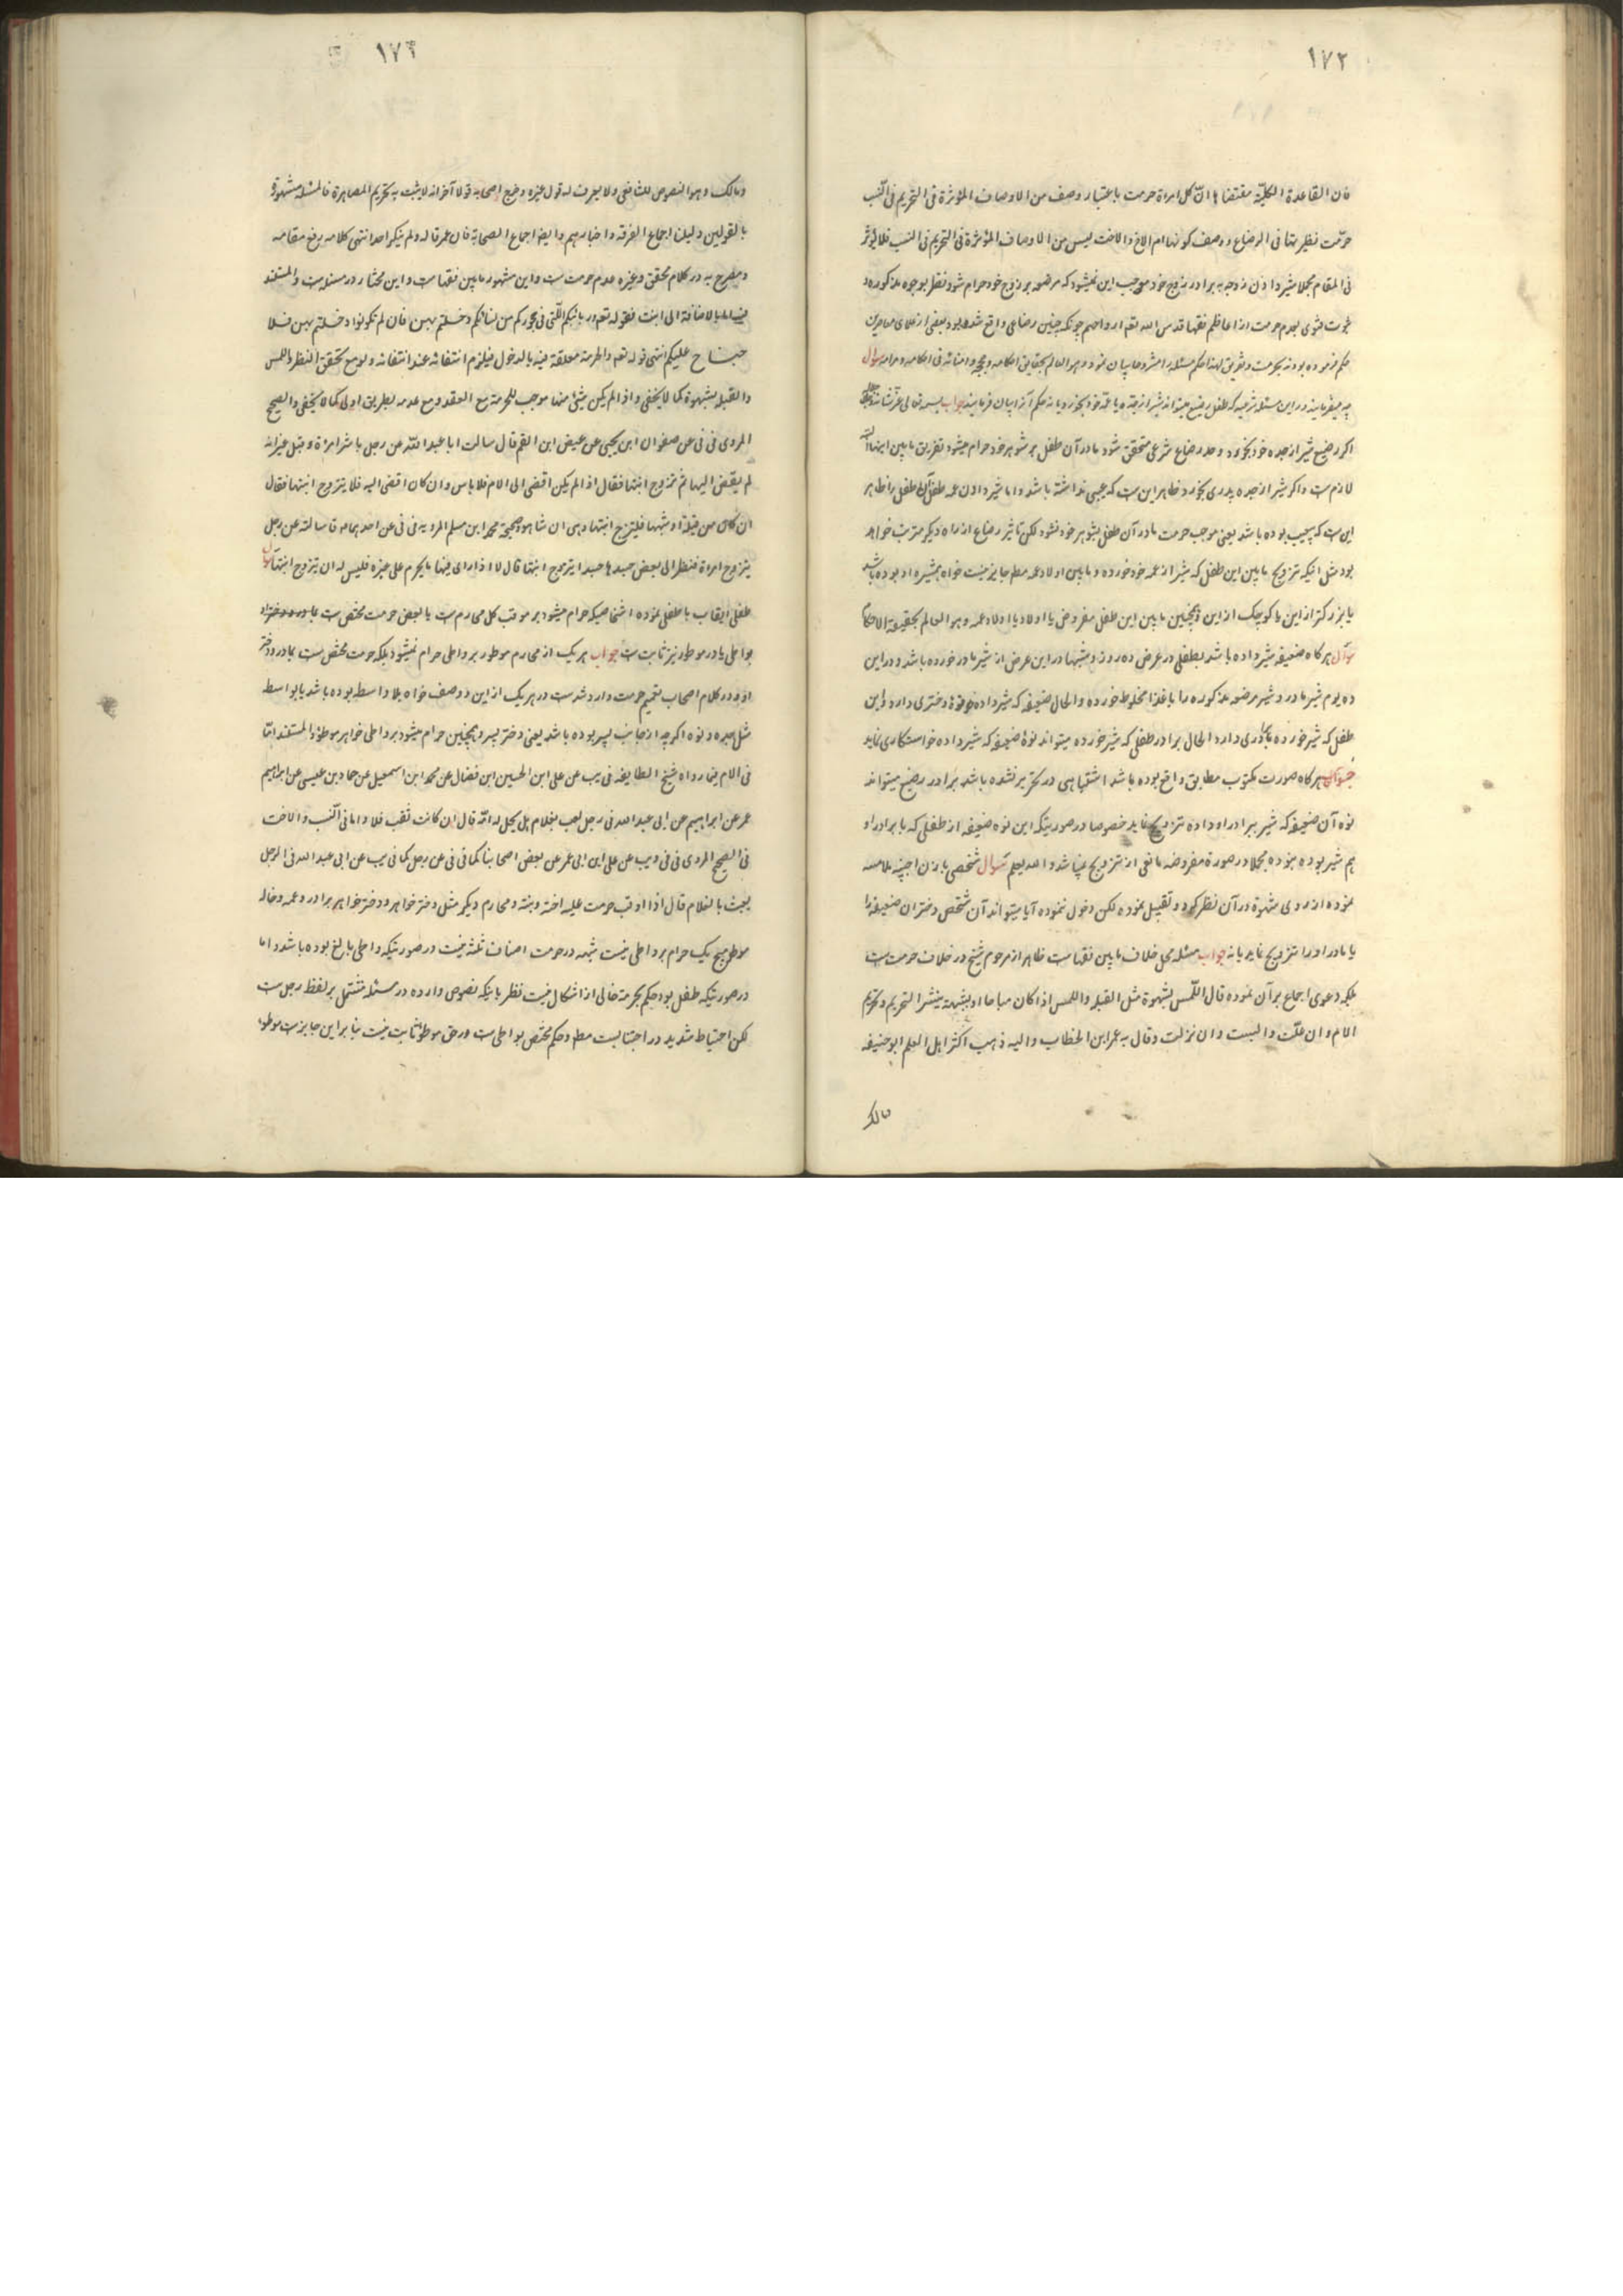 ١٧٢
فان القاعدة الكليّة مقتضاها انّ كل امراة حرمت باعتبار وصف من الاوصاف المؤثرة فى التحريم فى النّسب
حرّمت نظيرتها فى الرضاع ووصف كونها ام الاخ والاخت ليس من الاوصاف المؤثرة فى التحريم فى النسب فلا يؤثر
فى المقام مجملا شير دادن زوجه به برادر زوج خود موجب اين نميشود كه مرضعه بر زوج خود حرام شود نظر بوجوه مذكوره و
فتوى بعدم حرمت از اعاظم فقها قدس الله تعم ارواحهم چونكه چنين رضاعى واقع شده بود بعضى از علاى معاصرين
حكم فرموده بودند بحرمت وتفريق لهذا حكم مسئله را مشروحا بيان نمود وهو العالم بحقايق احكامه سوال
چه ميفرمايند در اين مسئله شرعيه كه طفل رضيع ميتواند شير از جدّه يا عمّه خود بخورد يا نه حكم آنرا بيان فرمايند جواب
اكر رضيع شير از جده خود بخورد وحد رضاع شرعى متحقق شود مادر آن طفل بر شوهر خود حرام ميشود تفريق مابين اينها
لازمست واكر شير از جده پدرى بخورد ظاهر اين ست كه عيبى نداشته باشد واما شير دادن عمه طفل آن طفل را ظاهر
اين ست كه بى عيب بوده باشد يعنى موجب حرمت مادر آن طفل بشوهر خود نشود لكن تاثير رضاع از راه ديكر مترتب خواهد
بود مثل انيكه تزويج مابين اين طفل كه شير از عمه خود خورده ومابين اولاد عمه مطم جايز نيست خواه همشيره او بوده باشد
يا بزركتر از اين يا كوچك از اين وهمچنين مابين اين طفل مفروض يا اولاد يا اولاد عمه وهو العالم بحقيقة الاحكام
سوال هركاه ضعيفه شير داده باشد بطفلى در عرض ده روز وشبها در اين عرض از شير مادر خورده باشد ودر اين
ده يوم شير مادر وشير مرضعه مذكوره را با غذا مخلوط خورده والحال ضعيفه كه شير داده نوۀ دخترى دارد واين
طفل كه شير خورده برادرى دارد الحال برادر طفلى كه شير خورده ميتواند نوۀ ضعيفه كه شير داده خواستكارى نمايد
جواب هركاه صورت مكتوب مطابق واقع بوده باشد اشتباهى در تحرير نشده باشد برادر رضيع ميتواند
نوه آن ضعيفه كه شير ببرادر او داده تزويج نمايد خصوصا در صورتيكه اين نوه ضعيفه از طفلى كه با برادر او
هم شير بوده نبوده مجملا در صورة مفروضه مانعى از تزويج نميباشد والله يعلم سوال شخصى با زن اجنبيّه ملامسه
نموده از روى شهوة در آن نظر كرد وتقبيل نموده لكن دخول ننموده آيا ميتواند آن شخص دختران ضعيفه را
يا مادر او را تزويج نمايد يا نه جواب مسئله محل خلاف مابين فقهاست ظاهر از مرحوم شيخ در خلاف حرمت ست
بلكه دعوى اجماع بر آن نموده قال اللّمس بشهوة مثل القبلة واللمس اذا كان مباحا او بشبهة ينشر التحريم وتحريم
الام وان علت والبنت وان نزلت وقال به عمر ابن الخطاب واليه ذهب اكثر اهل العلم ابو حنيفه
مالك
١٧٣
ومالك وهو المنصوص للشافعى ولا يعرف له قول غيره وخرج اصحابه قولا آخر انه لا يثبت به تحريم المصاهرة فالمسئلة مشهورة
بالقولين دليلنا اجماع الفرقه واخبارهم وايضا اجماع الصحابة فان عمر قاله ولم ينكر احد انتهى كلامه رفع مقامه
ومصرح به در كلام محقق وغيره عدم حرمت ست واين مشهور مابين فقهاست واين مختار در مسئله ست والمستند
فيه اما بالاضافة الى ابنت فقوله تعم وربائبكم اللّتى فى حجوركم من نسائكم دخلتم بهن فان لم تكونوا دخلتم بهن فلا
جناح عليكم انتهى قوله تعم والحرمة معلقة فيه بالدخول فيلزم انتفائه عند انتفائه ولو مع تحقق النظر واللمس
والقبلة بشهوة كما لا يخفى واذا لم يكن شئ منها موجب للحرمة مع العقد ومع عدمه بطريق اولى كما لا يخفى والصحيح
المروى فى فى عن صفوان ابن يحيى عن عيص ابن القسم قال سالت ابا عبد اللّه عن رجل باشر امراة وقبل غير انه
لم يفض اليها ثم تزوج ابنتها فقال اذا لم يكن افضى الى الام فلا باس وان كان افضى اليه فلا يتزوج ابنتها فقال
ان كان من قبلة او شبهها فليتزوج ابنتها وهى ان شا وصحيحة محمد ابن مسلم المرويه فى فى عن احدهما قال سالته عن رجل
يتزوج امراة فنظر الى بعض جسدها ايتزوج ابنتها قال لا اذا راى منها ما يحرم على غيره فليس له ان يتزوج ابنتها سوال
طفلى ايقاب با طفلى نموده اشخاصيكه حرام ميشود بر موقب كل محارم ست يا بعض حرمت مختص ست
بواطى يا در موطوء نيز ثابت ست جواب هر يك از محارم موطوء بر واطى حرام نميشود بلكه حرمت مختص ست بمادر ودختر
او ودر كلام اصحاب تعميم حرمت وارد شدست در هر يك از اين دو صنف خواه بلا واسطه بوده باشد يا بواسطه
مثل جده ونوه اكرچه از جانب پسر بوده باشد يعنى دختر پسر وهمچنين حرام ميشود بر واطى خواهر موطوء والمستند امّا
فى الام فيما رواه شيخ الطايفه فى يب عن على ابن الحسين ابن فضال عن محمد ابن اسمعيل عن حماد بن عيسى عن ابراهيم
عمر عن ابراهيم عن ابى عبد الله فى رجل لعب بغلام هل يحل له امّه قال ان كانت ثقب فلا واما فى النّسب والاخت
فى الصحيح المروى فى فى ويب عن على ابن ابى عمر عن بعض اصحابنا كما فى فى عن رجل كما فى يب عن ابى عبد الله فى الرجل
يعبث بالغلام قال اذا اوقب حرمت عليه اخته وبنته ومحارم ديكر مثل دختر خواهر ودختر خواهر برادر وعمه وخاله
موطوء هيچ يك حرام بر واطى نيست شبهه در حرمت اصناف ثلثه نيست در صورتيكه واطى بالغ بوده باشد واما
در صورتيكه طفل بود حكم بحرمة خالى از اشكال نيست نظر باينكه نصوص وارده در مسئله مشتمل بر لفظ رجل ست
لكن احتياط شديد در اجتنابست مطم وحكم مختص بواطى ست ودر حق موطوء ثابت نيست بنابراين جايزست موطوء